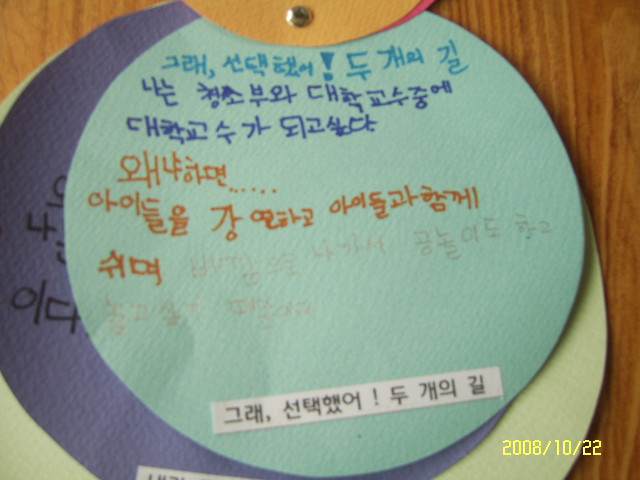 그래, 선택했어! 두 개의 길
나는 청소부와 대학교수중에
대학교수가 되고싶다
왜냐하면.....
아이들을 강연하고 아이들과 함께
쉬며 밖으로 나가서 공놀이도 하고
놀고싶기 때문이다
그래, 선택했어! 두 개의 길
나는
이다
2008/10/22